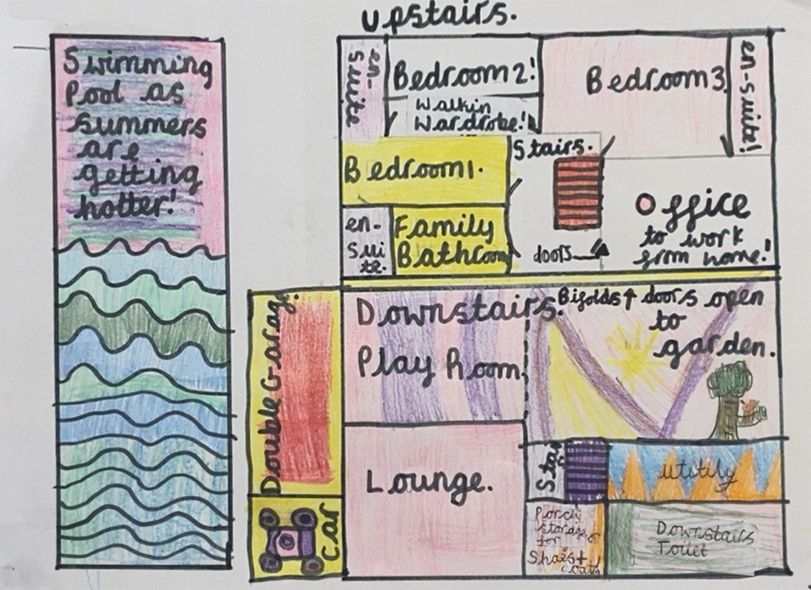 upstairs.
Swimming
Pool as
summers
are
getting
hotter!
en-
suite
Bedroom2!
Walkin
Wardrobe!
Bedroom3
en-suite!
Bedroom1.
Stairs.
en-
sui
te.
Family
Bathroom
doors
Office
to work
from home!
Double Garage.
car
Downstairs.
Play Room
Bifolds↑ doors open
to
garden.
Lounge.
Stai
utitily
Porch
storage
for
Downstairs
Toilet